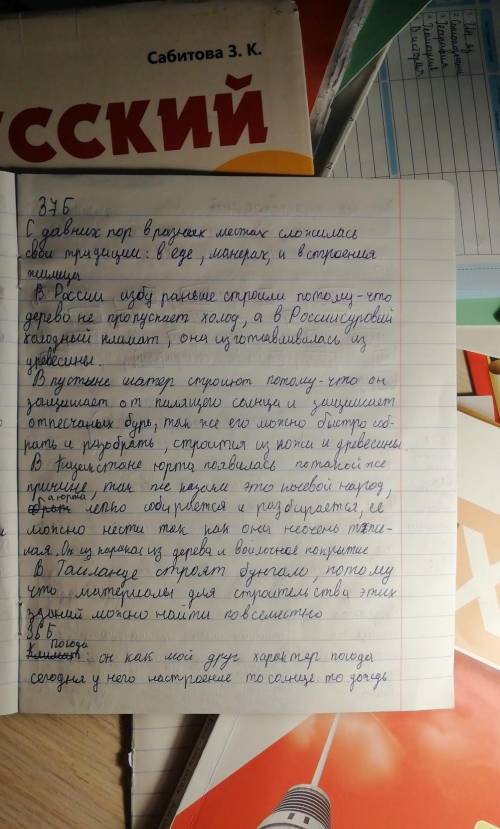 Сабитова З. К.
УССКИЙ
37Б
С давних пор в разных местах сложилась
свои традиции: в еде, манерах, и в строения
жилища
В России избу раньше строили потому-что
дерево не пропускает холод, а в России суровый
холодный климат, она изготавливалась из
древесины.
В пустыне шатер строиют потому-что он
защищает от палящего солнца и защищает
от песчаных бурь, так же его можно быстро соб-
рать и разобрать, строится из кожи и древесины.
В Казахстане юрта появилась по такой же
причине, так же казахи это кочевой народ,
а юрта легко собирается и разбирается, её
можно нести так как она не очень тяже-
лая. Он из каркас из дерева и войлочное покрытие
В Таиланде строят бунгало, потому
что материалы для строительства этих
зданий можно найти повсеместно
36Б
Погода
Климат: он как мой друг характер погода
сегодня у него настроение то солнце то дождь